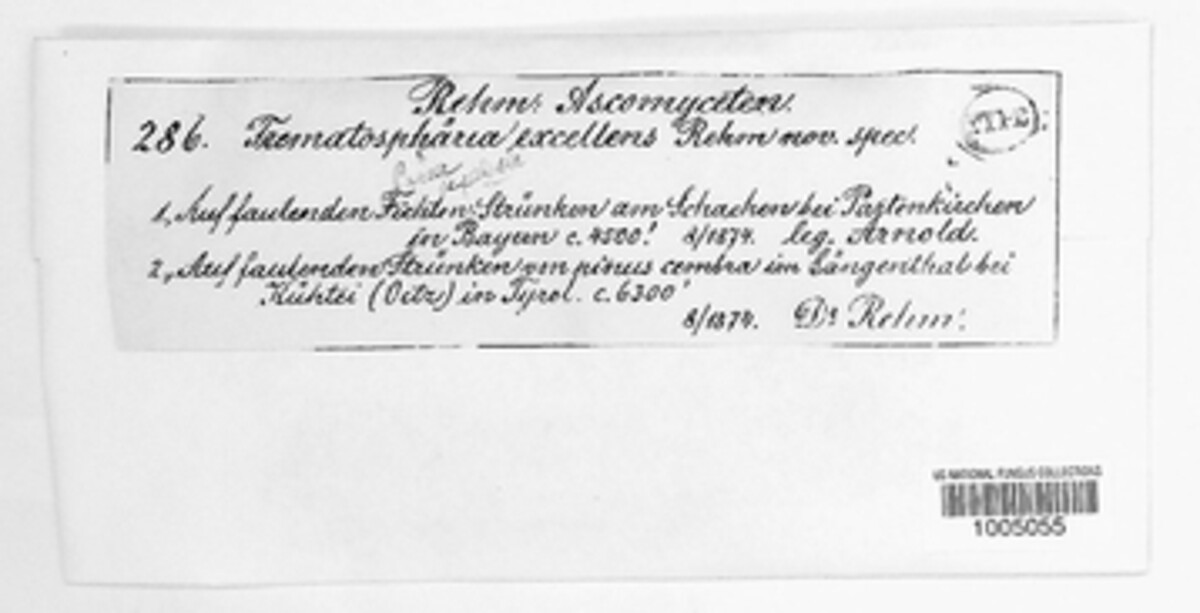 Rehm: Ascomyceten.
286. Trematosphäria excellens Rehm nov. spec.
1, Auf faulenden Fichten-Strünken am Schachen bei Partenkirchen
in Bayern c. 4500! 8/1874. leg. Arnold.
2, Auf faulenden Strünken von pinus cembra im Längenthal bei
Kühtei (Oetz) in Tyrol. c. 6300'
8/1874. Dr Rehm.
US NATIONAL FUNGUS COLLECTIONS
1005055